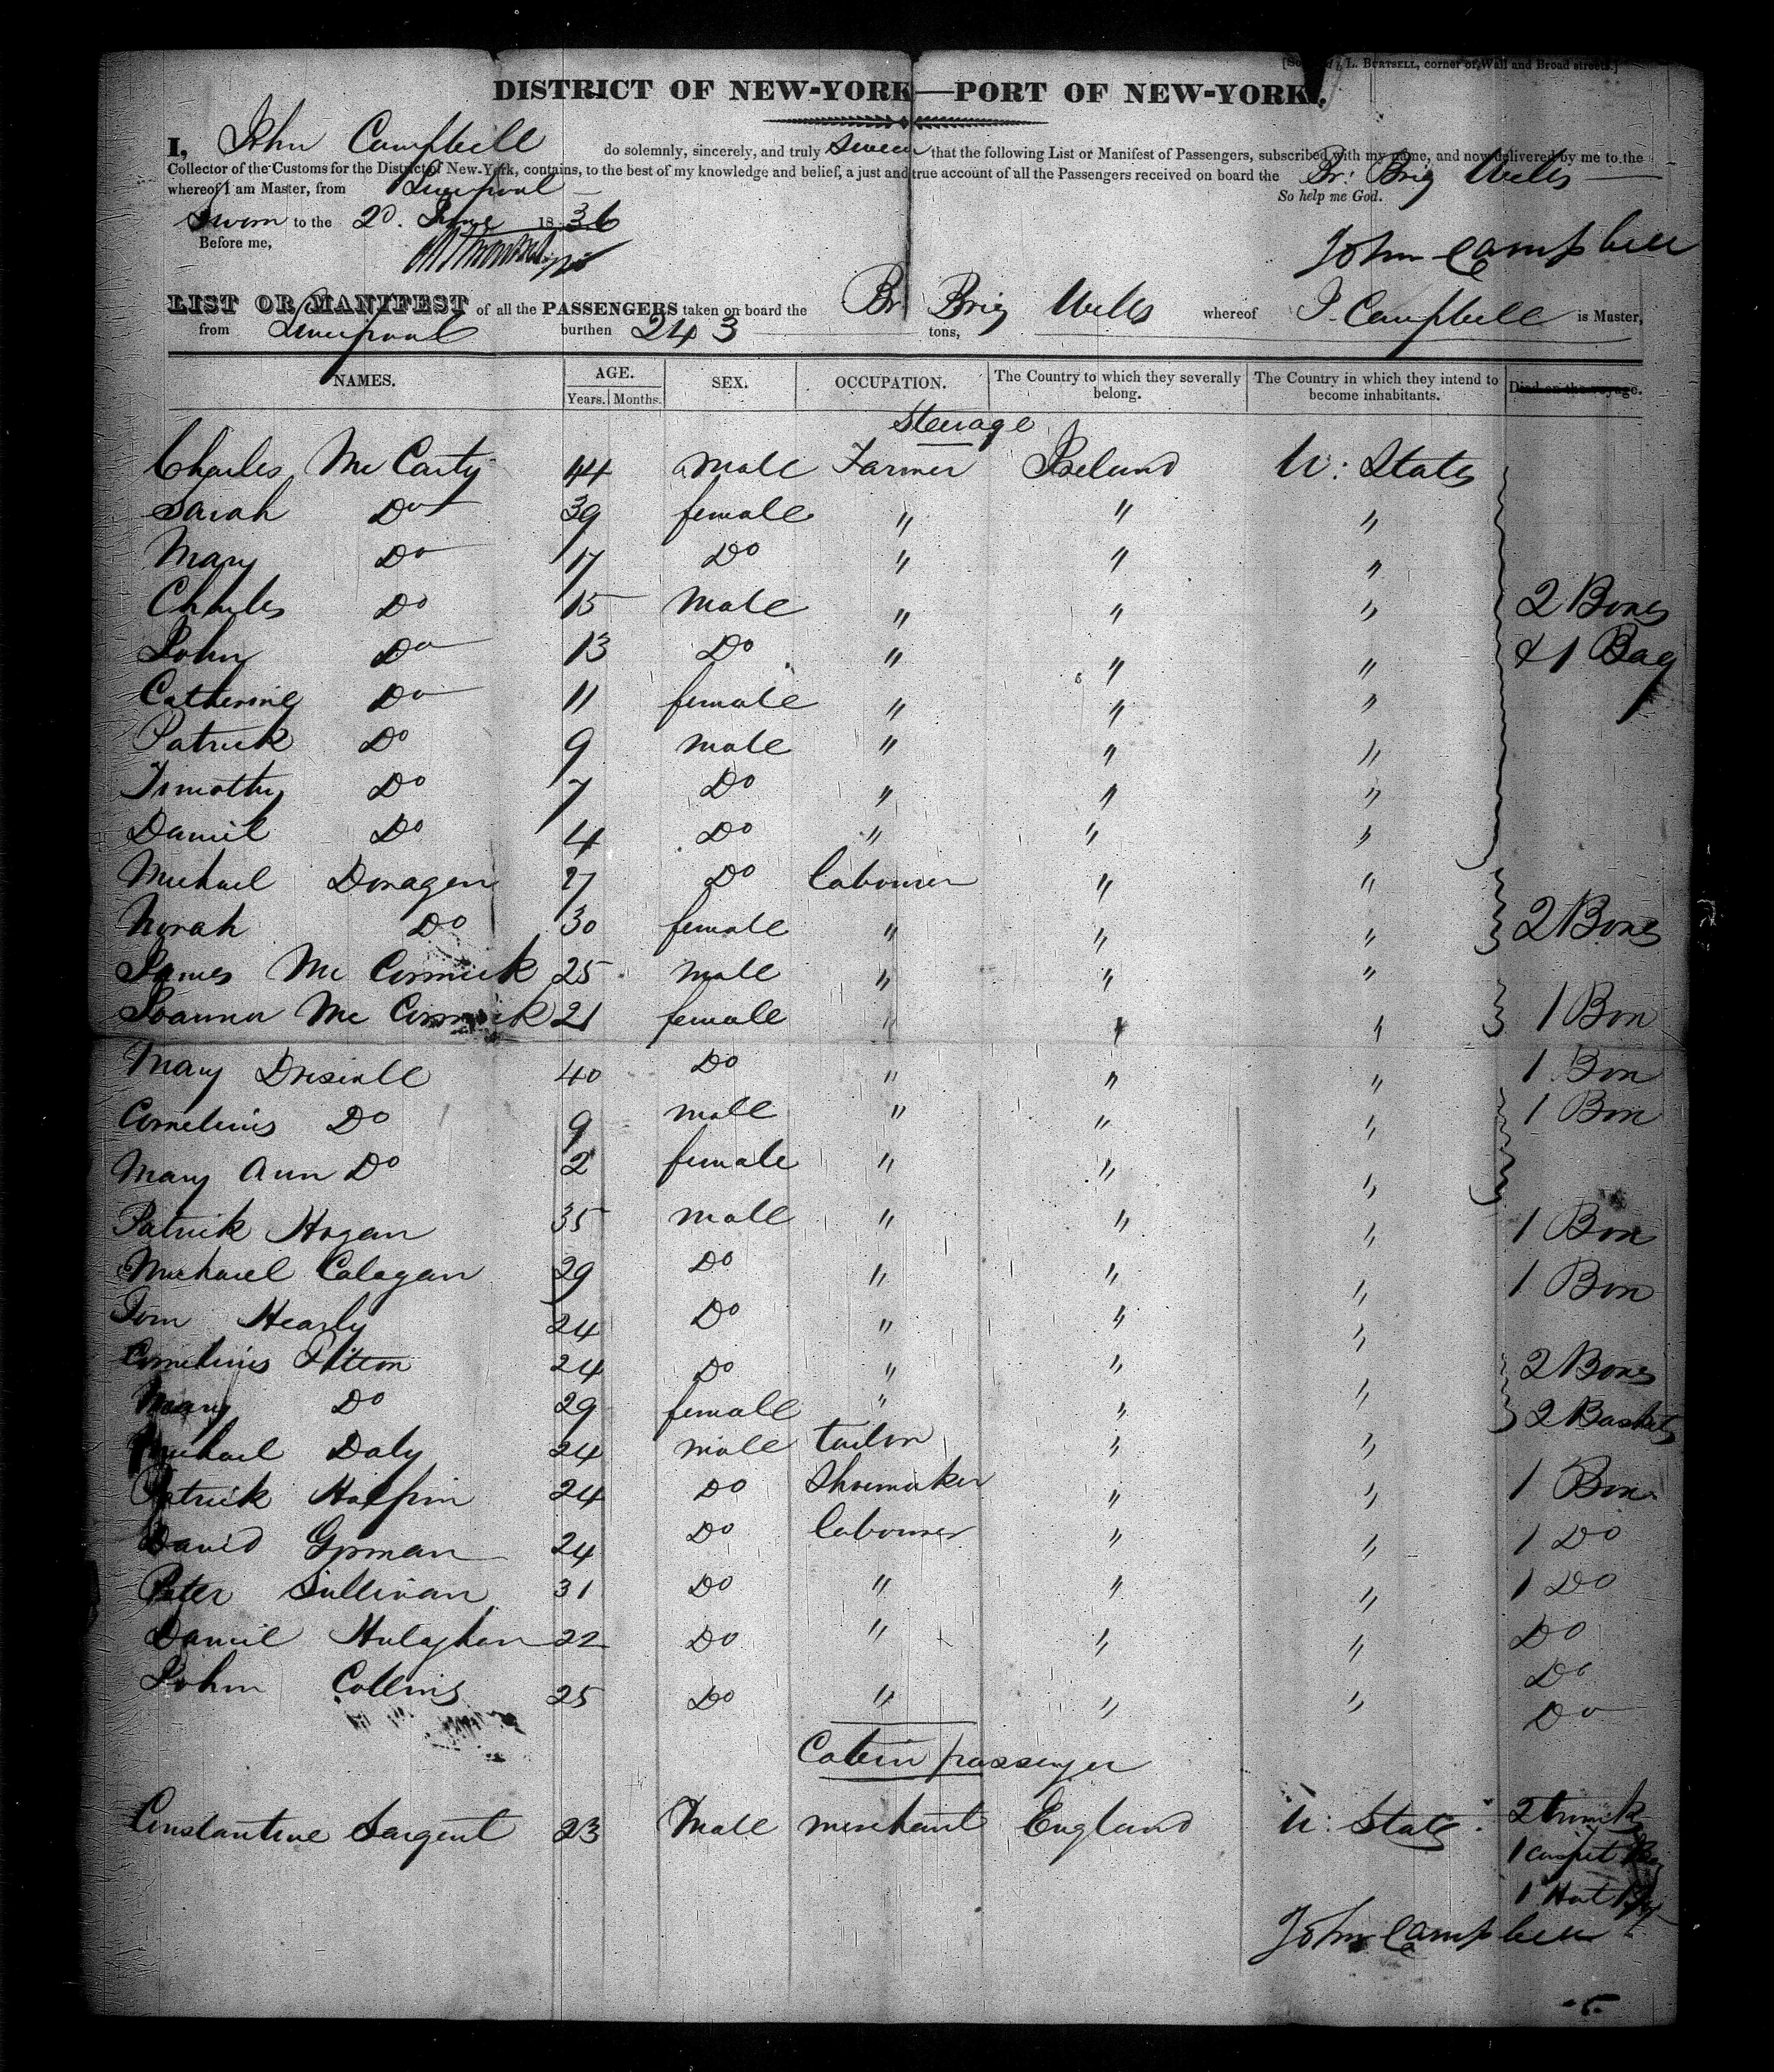 L. BURTSELL, corner of Wall and Broad streets.]
DISTRICT OF NEW-YORK—PORT OF NEW-YORK.
I, John Campbell do solemnly, sincerely, and truly swear that the following List or Manifest of Passengers, subscribed with my name, and now delivered by me to the
Collector of the Customs for the District of New-York, contains, to the best of my knowledge and belief, a just and true account of all the Passengers received on board the Br: Brig Wells
whereof I am Master, from Liverpool
So help me God.
Sworn to the 20. June 1836
Before me,
John Campbell
LIST OR MANIFEST of all the PASSENGERS taken on board the Br Brig Wells whereof J. Campbell is Master,
from Liverpool burthen 243 tons,
NAMES. AGE. SEX. OCCUPATION. The Country to which they severally belong. The Country in which they intend to become inhabitants. Died on the voyage.
Years. Months.
Steerage
Charles McCarty 44 male Farmer Ireland U: States
Sarah Do 39 female " " "
Mary Do 17 Do " " "
Charles Do 15 male " " " 2 Boxes
John Do 13 Do " " " & 1 Bag
Catherine Do 11 female " " "
Patrick Do 9 male " " "
Timothy Do 7 Do " " "
Daniel Do 4 Do " " "
Michael Donagen 27 Do labourer " "
Norah Do 30 female " " " 2 Boxes
James McCormick 25 male " " "
Joanna McCormick 21 female " " " 1 Box
Mary Driscoll 40 Do " " " 1 Box
Cornelius Do 9 male " " " 1 Box
Mary Ann Do 2 female " " "
Patrick Hogan 35 male " " " 1 Box
Michael Calagan 29 Do " " " 1 Box
Tom Hearly 24 Do " " "
Cornelius 24 Do " " " 2 Boxes
Mary Do 29 female " " " 2 Baskets
Michael Daly 24 male tailor " "
Patrick Halpin 24 Do Shoemaker " " 1 Box
David Gorman 24 Do labourer " " 1 Do
Peter Sullivan 31 Do " " " 1 Do
Daniel Hulaghan 22 Do " " " Do
John Collins 25 Do " " " Do
Do
Cabin passenger
Constantine Sargent 23 Male merchant England U: States 2 trunks
1 carpet Bag
1 Hat
John Campbell